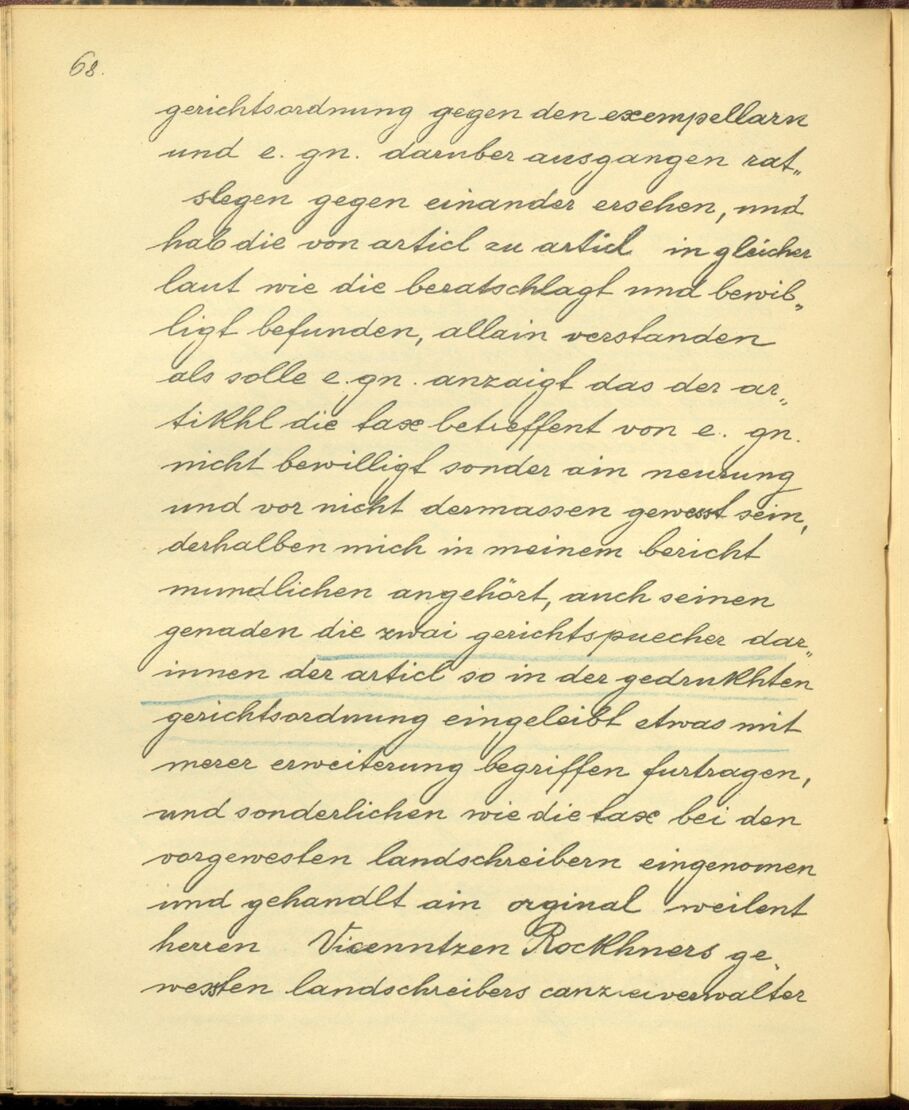 68.
gerichtsordnung gegen den exempellarn
und e. gn. daruber ausgangen rat„
slegen gegen einander ersehen, und
hab die von articl zu articl in gleicher
laut wie die beratschlagt und bewil„
ligt befunden, allain verstanden
als solle e. gn. anzaigt das der ar„
tikhl die tax betreffent von e. gn.
nicht bewilligt sonder ain neurung
und vor nicht dermassen gewesst sein,
derhalben mich in meinem bericht
mundlichen angehört, auch seinen
genaden die zwai gerichtspuecher dar„
innen der articl so in der gedrukhten
gerichtsordnung eingeleibt etwas mit
merer erweiterung begriffen furtragen,
und sonderlichen wie die tax bei den
vorgewesten landschreibern eingenomen
und gehandlt ain orginal weilent
herren Vicenntzen Rockhners ge„
westen landschreibers canzleiverwalter